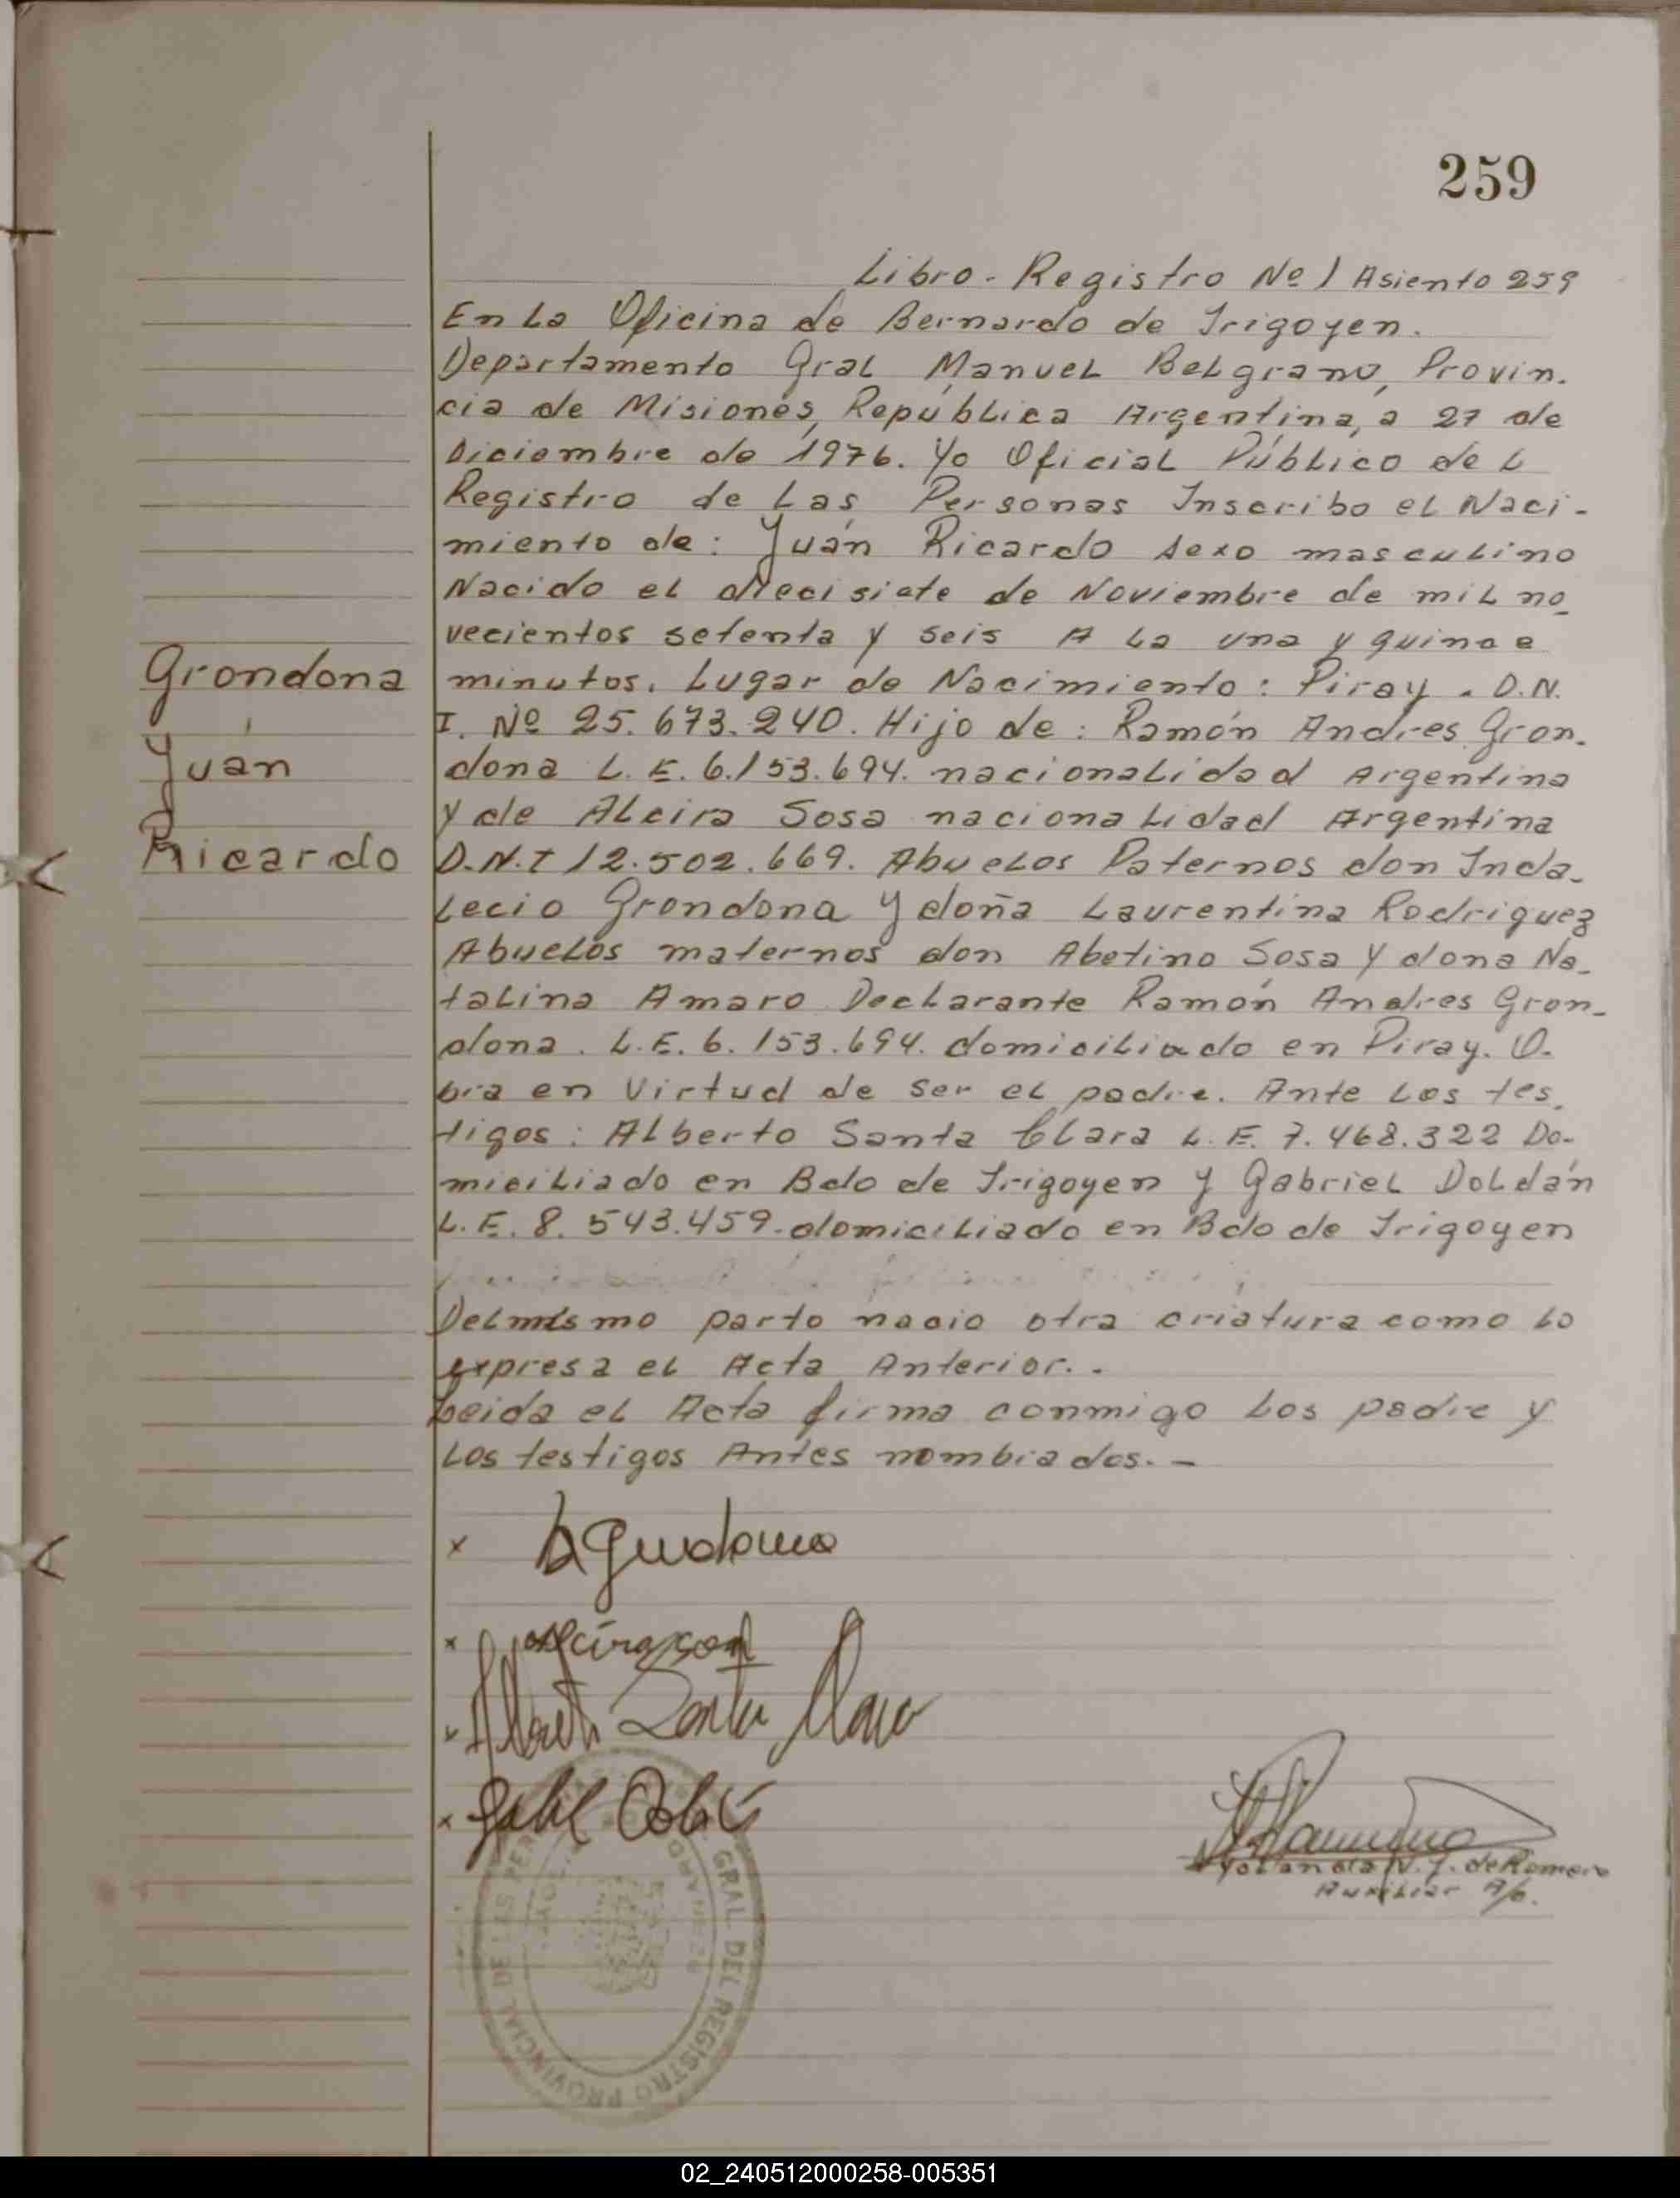 259
Libro - Registro Nº 1 Asiento 259
En La Oficina de Bernardo de Irigoyen.
Departamento Gral Manuel Belgrano, Provin-
cia de Misiones, República Argentina, a 27 de
Diciembre de 1976. Yo Oficial Público del
Registro de Las Personas Inscribo el Naci-
miento de: Juán Ricardo sexo masculino
Nacido el diecisiete de Noviembre de mil no-
vecientos setenta y seis A La una y quince
Grondona
minutos. Lugar de Nacimiento: Piray. D.N.
I. Nº 25.673.240. Hijo de: Ramón Andres Gron-
Juán
dona L.E. 6.153.694. nacionalidad Argentina
y de Alcira Sosa nacionalidad Argentina
Ricardo
D.N.I 12.502.669. Abuelos Paternos don Inda-
lecio Grondona y doña Laurentina Rodriguez
Abuelos maternos don Abetino Sosa y dona Na-
talina Amaro Declarante Ramón Andres Gron-
dona. L.E. 6.153.694. domiciliado en Piray. O-
bra en Virtud de ser el padre. Ante Los tes-
tigos: Alberto Santa Clara L.E. 7.468.322 Do-
miciliado en Bdo de Irigoyen y Gabriel Doldán
L.E. 8.543.459. domiciliado en Bdo de Irigoyen
Del mismo parto nacio otra criatura como lo
expresa el Acta Anterior..
Leida el Acta firma conmigo Los padre y
Los testigos Antes nombrados.-
x
x Alcira Sosa
x Alberto Santa Clara
x
Yolanda N. J. de Romero
Auxiliar A/c.
GRAL. DEL REGISTRO PROVINCIAL DE LAS PER
02_240512000258-005351